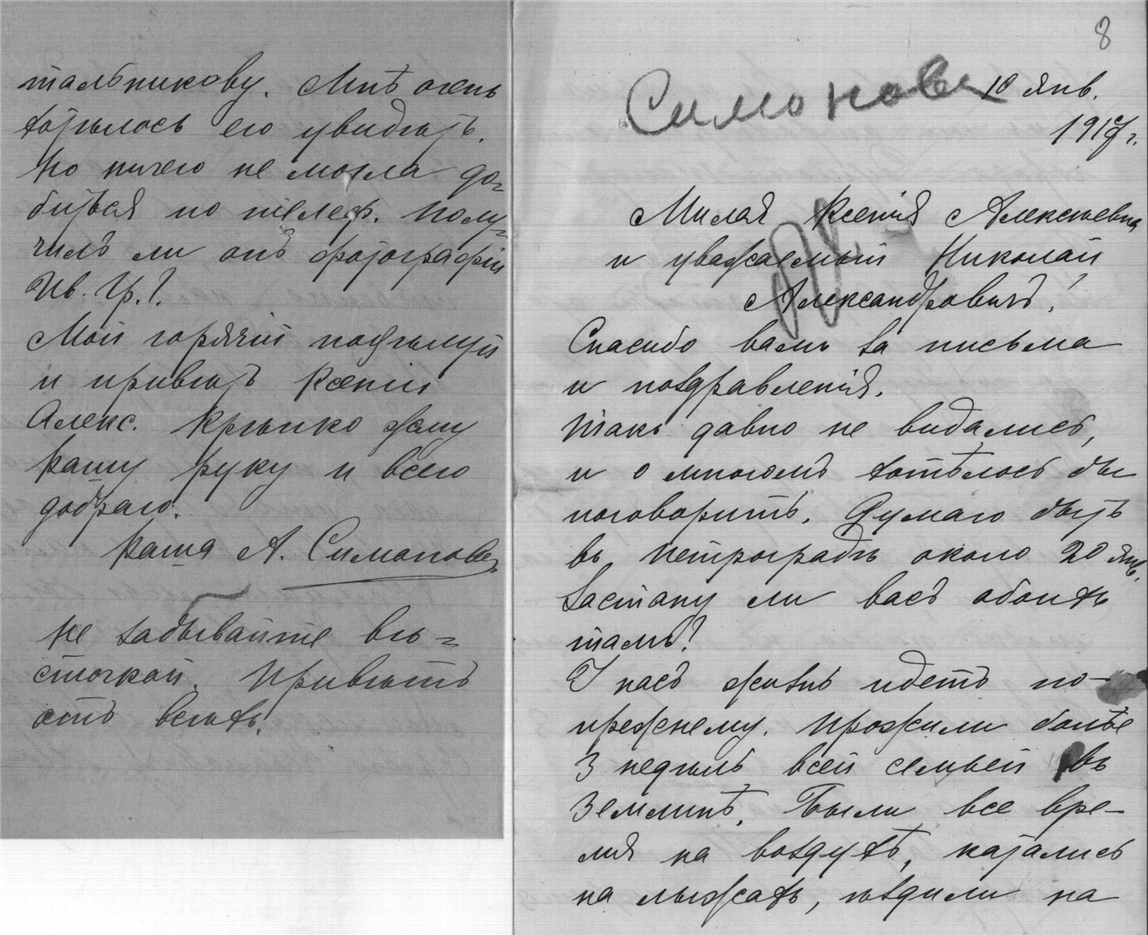 тальникову. Мнѣ очень
хотѣлось его увидѣть.
Но ничего не могла до-
биться по телеф. Полу-
чилъ ли онъ фотографіи
Ив. Гр.?
Мой горячій поцѣлуй
и привѣтъ Ксеніи
Алекс. Крѣпко жму
Вашу руку и всего
добраго.
Ваша А. Симонова
Не забывайте вѣ-
сточкой. Привѣтъ
отъ всѣхъ!
8
Симонова
10 янв.
1917 г.
Милая Ксенія Алексѣевна
и уважаемый Николай
Александровичъ!
Спасибо вамъ за письма
и поздравленія.
Такъ давно не видались,
и о многомъ хотѣлось бы
поговорить. Думаю быть
въ Петроградѣ около 20 янв.
Застану ли васъ обоихъ
тамъ?
У насъ жизнь идетъ по-
прежнему. Прожили болѣе
3 недѣль всей семьей въ
Землинѣ. Были все вре-
мя на воздухѣ, катались
на лыжахъ, ѣздили на